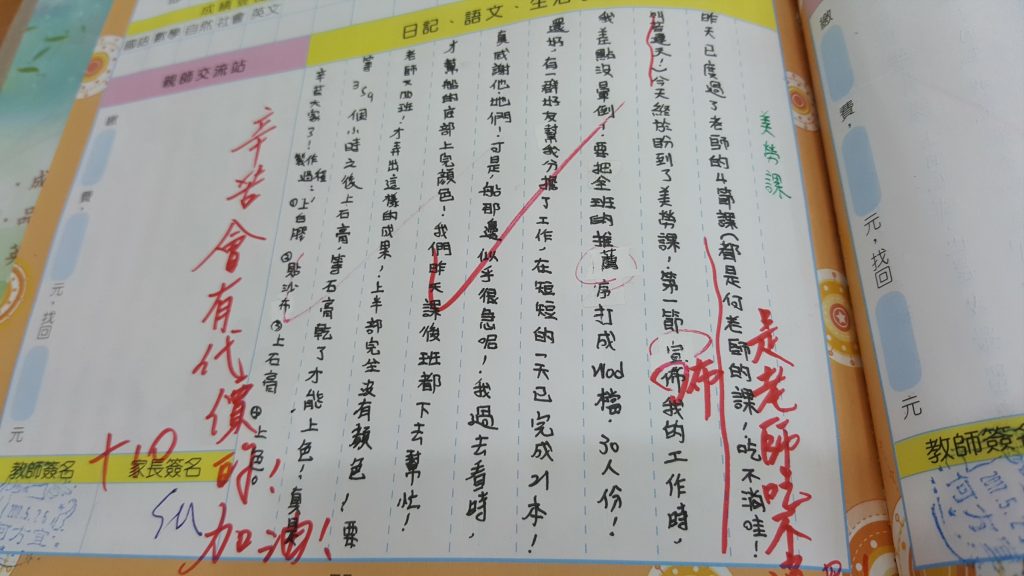 成績登
國語 數學 自然 社會 英文
日記、語文、生活
親師交流站
美勞課
昨天已度過了老師的4節課(都是何老師的課,吃不消哇!
是老師吃不消
運天!今天終於盼到了美勞課!第一節宣佈我的工作時,
布
我差點沒暈倒!要把全班的推薦序打成Mod檔.30人份!
還好有一群好友幫我分擔了工作,在短短的一天已完成21本!
真感謝他地們!可是船那邊似乎很急呢!我過去看時,
才幫船的底部上完顏色!我們昨天課後班都下去幫忙!
老師又西班,才弄出這樣的成果,上半部完全沒有顏色!要
等359個小時之後上石膏,等石膏乾了才能上色!真是
辛苦大家了!
製作過程:①上白膠 ②貼沙布 ③上石膏 ④上色。
辛苦會有代價的!
加油!
+10
繳
費,
元,找回
元
教師簽名
家長簽名
何方宜
繳
費,
元,找回
元
教師簽名
何方